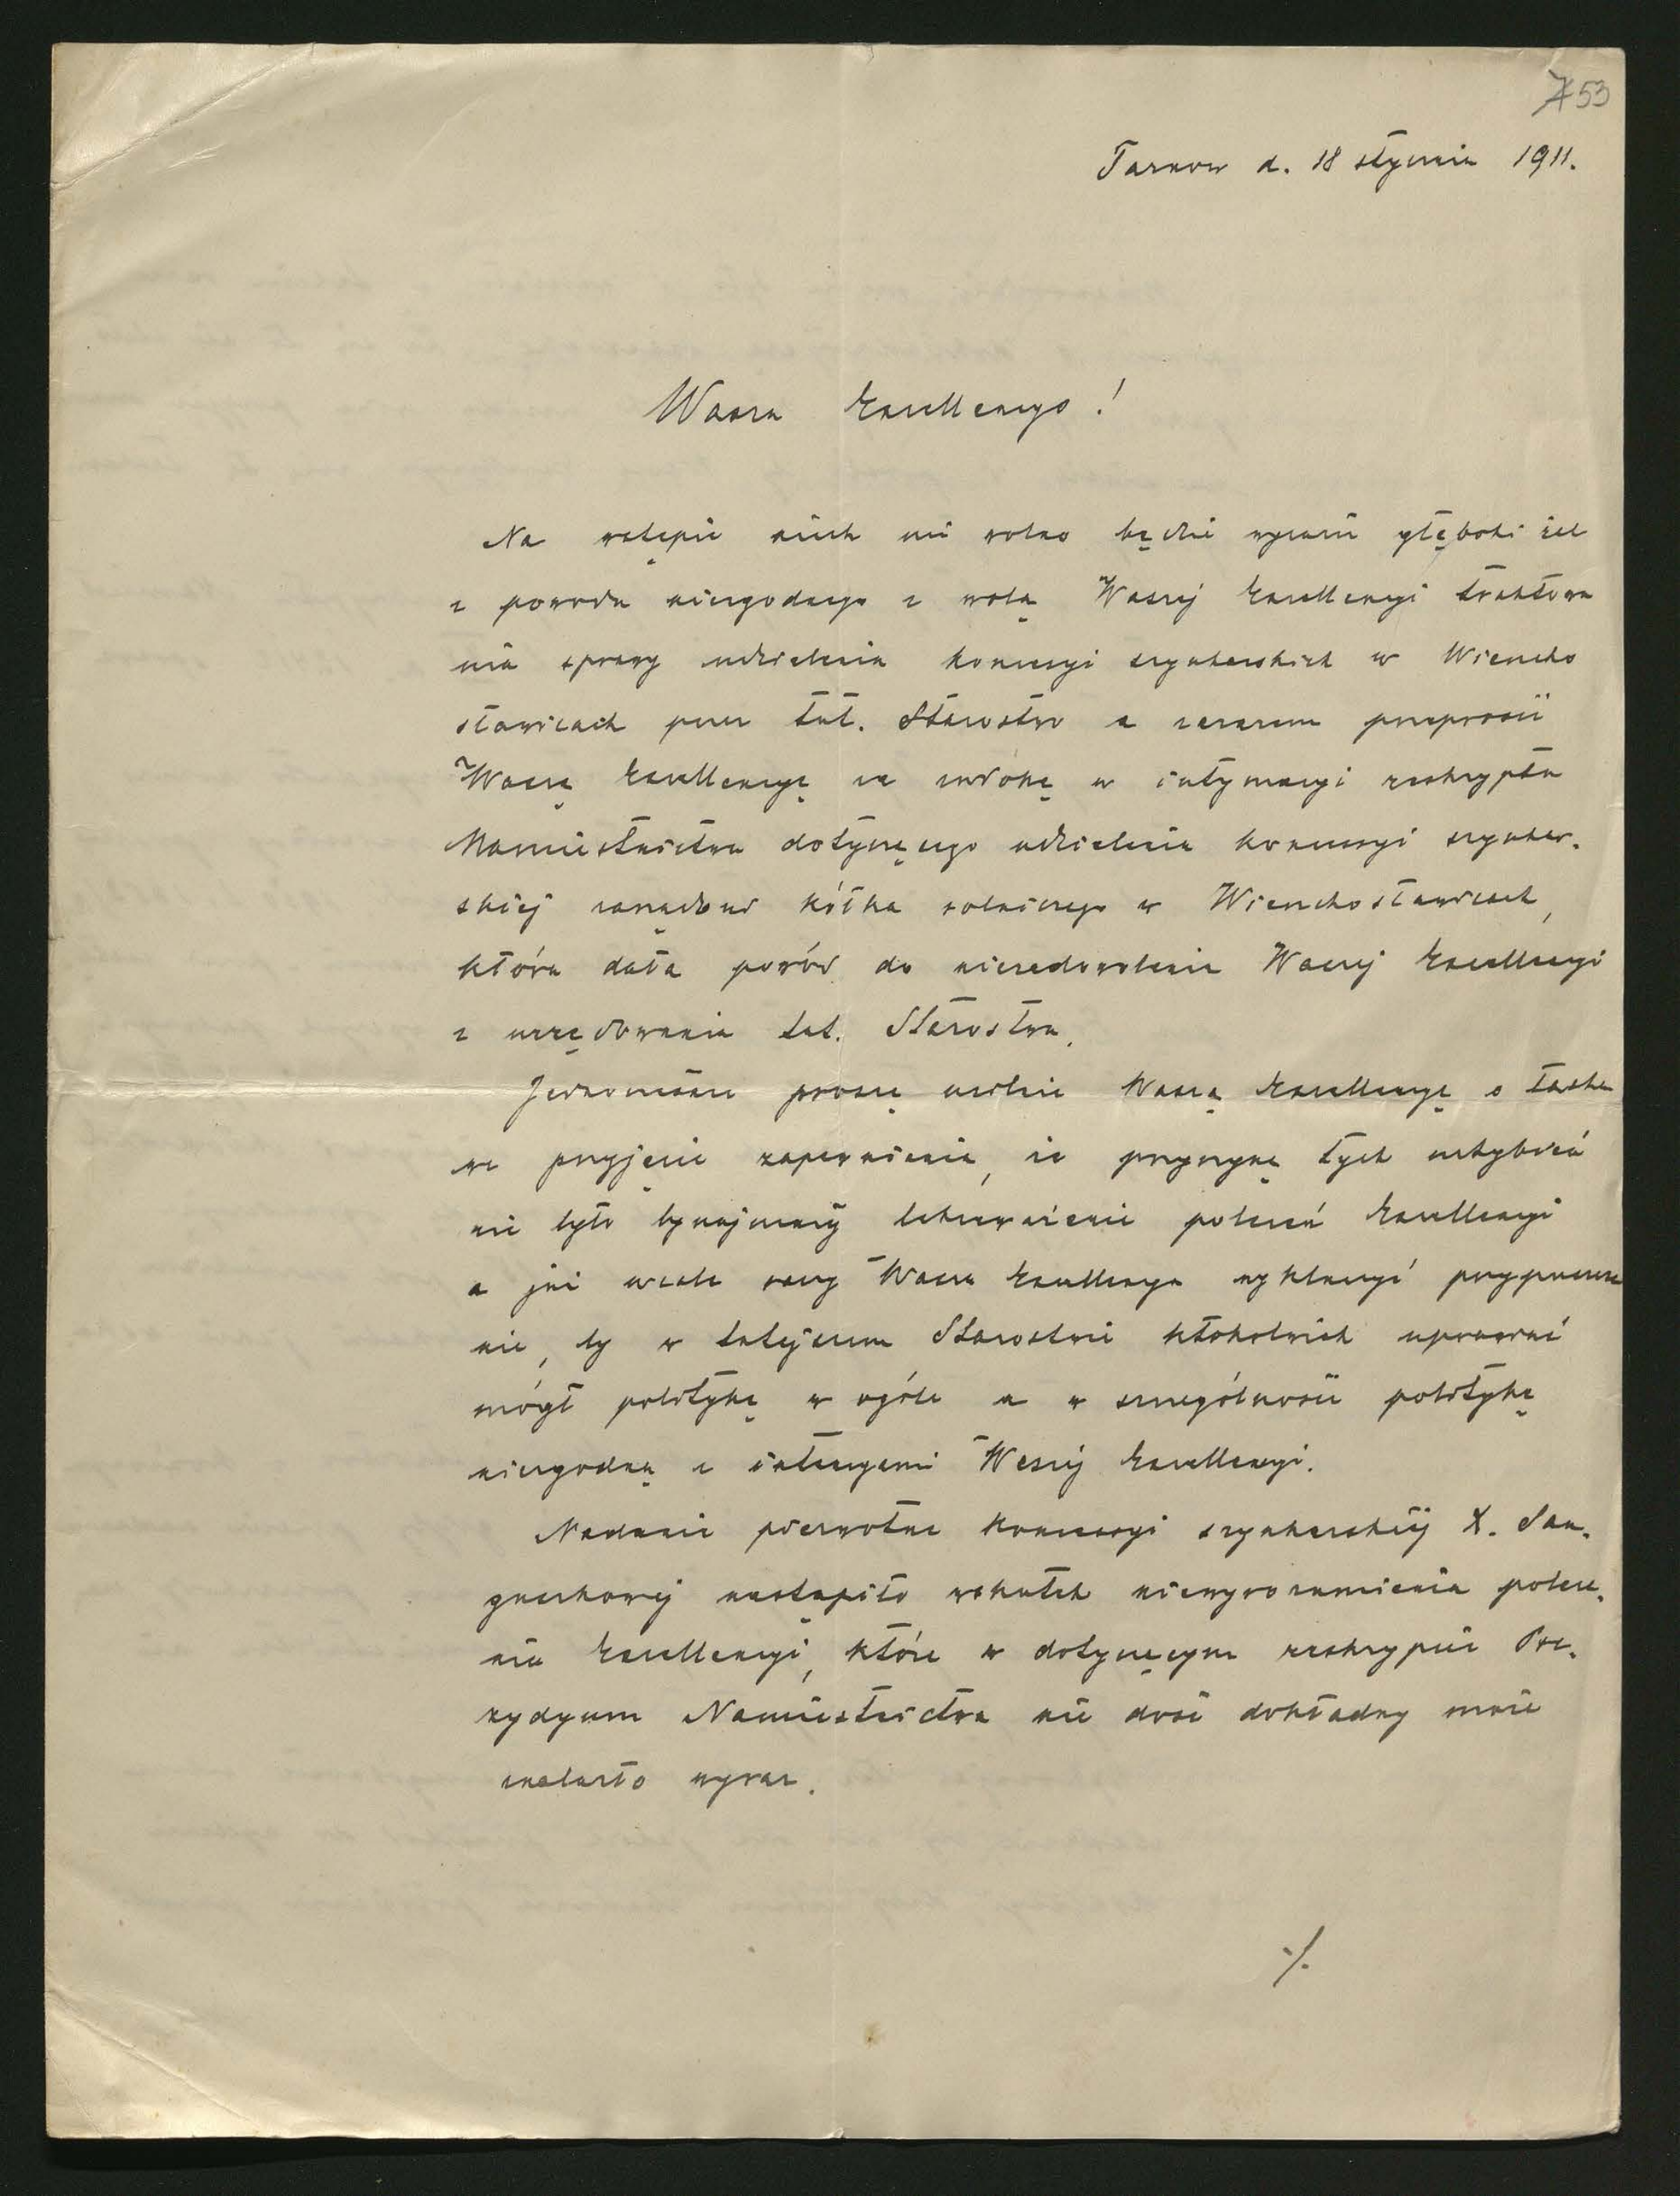 53
Tarnow d. 18 stycznia 1911.
Wasza Excellencyo!
Na wstępie niech mi wolno będzie wyrazić głęboki żal
z powodu niezgodnego z wolą Waszej Excellencyi traktowa
nia sprawy udzielenia koncesyi szynkarskich w Wiencho
sławicach przez tut. Starostwo a zarazem przeprosić
Waszą Excellencyę za zwłokę w intymacyi reskryptu
Namiestnictwa dotyczącego udzielenia koncesyi szynkar-
skiej zarządowi kółka rolniczego w Wienchosławicach,
która dała powód do niezadowolenia Waszej Excellencyi
z urzędowania tut. Starostwa.
Jednocześnie proszę usilnie Waszą Excellencyę o łaska
we przyjęcie zapewnienia, że przyczyną tych uchybień
nie było bynajmniej lekceważenie poleceń Excellencyi
a już wcale raczy Wasza Excellencya wykluczyć przypuszcze
nie, by w tutejszem Starostwie ktokolwiek uprawiać
mógł politykę w ogóle a w szczególności politykę
niezgodną z intencyami Waszej Excellencyi.
Nadanie pierwotne koncessyi szynkarskiej X. San-
guszkowej nastąpiło wskutek niewyrozumienia polece-
nia Excellencyi, które w dotyczącym reskrypcie Pre-
zydyum Namiestnictwa nie dość dokładny może
znalazło wyraz.
./.